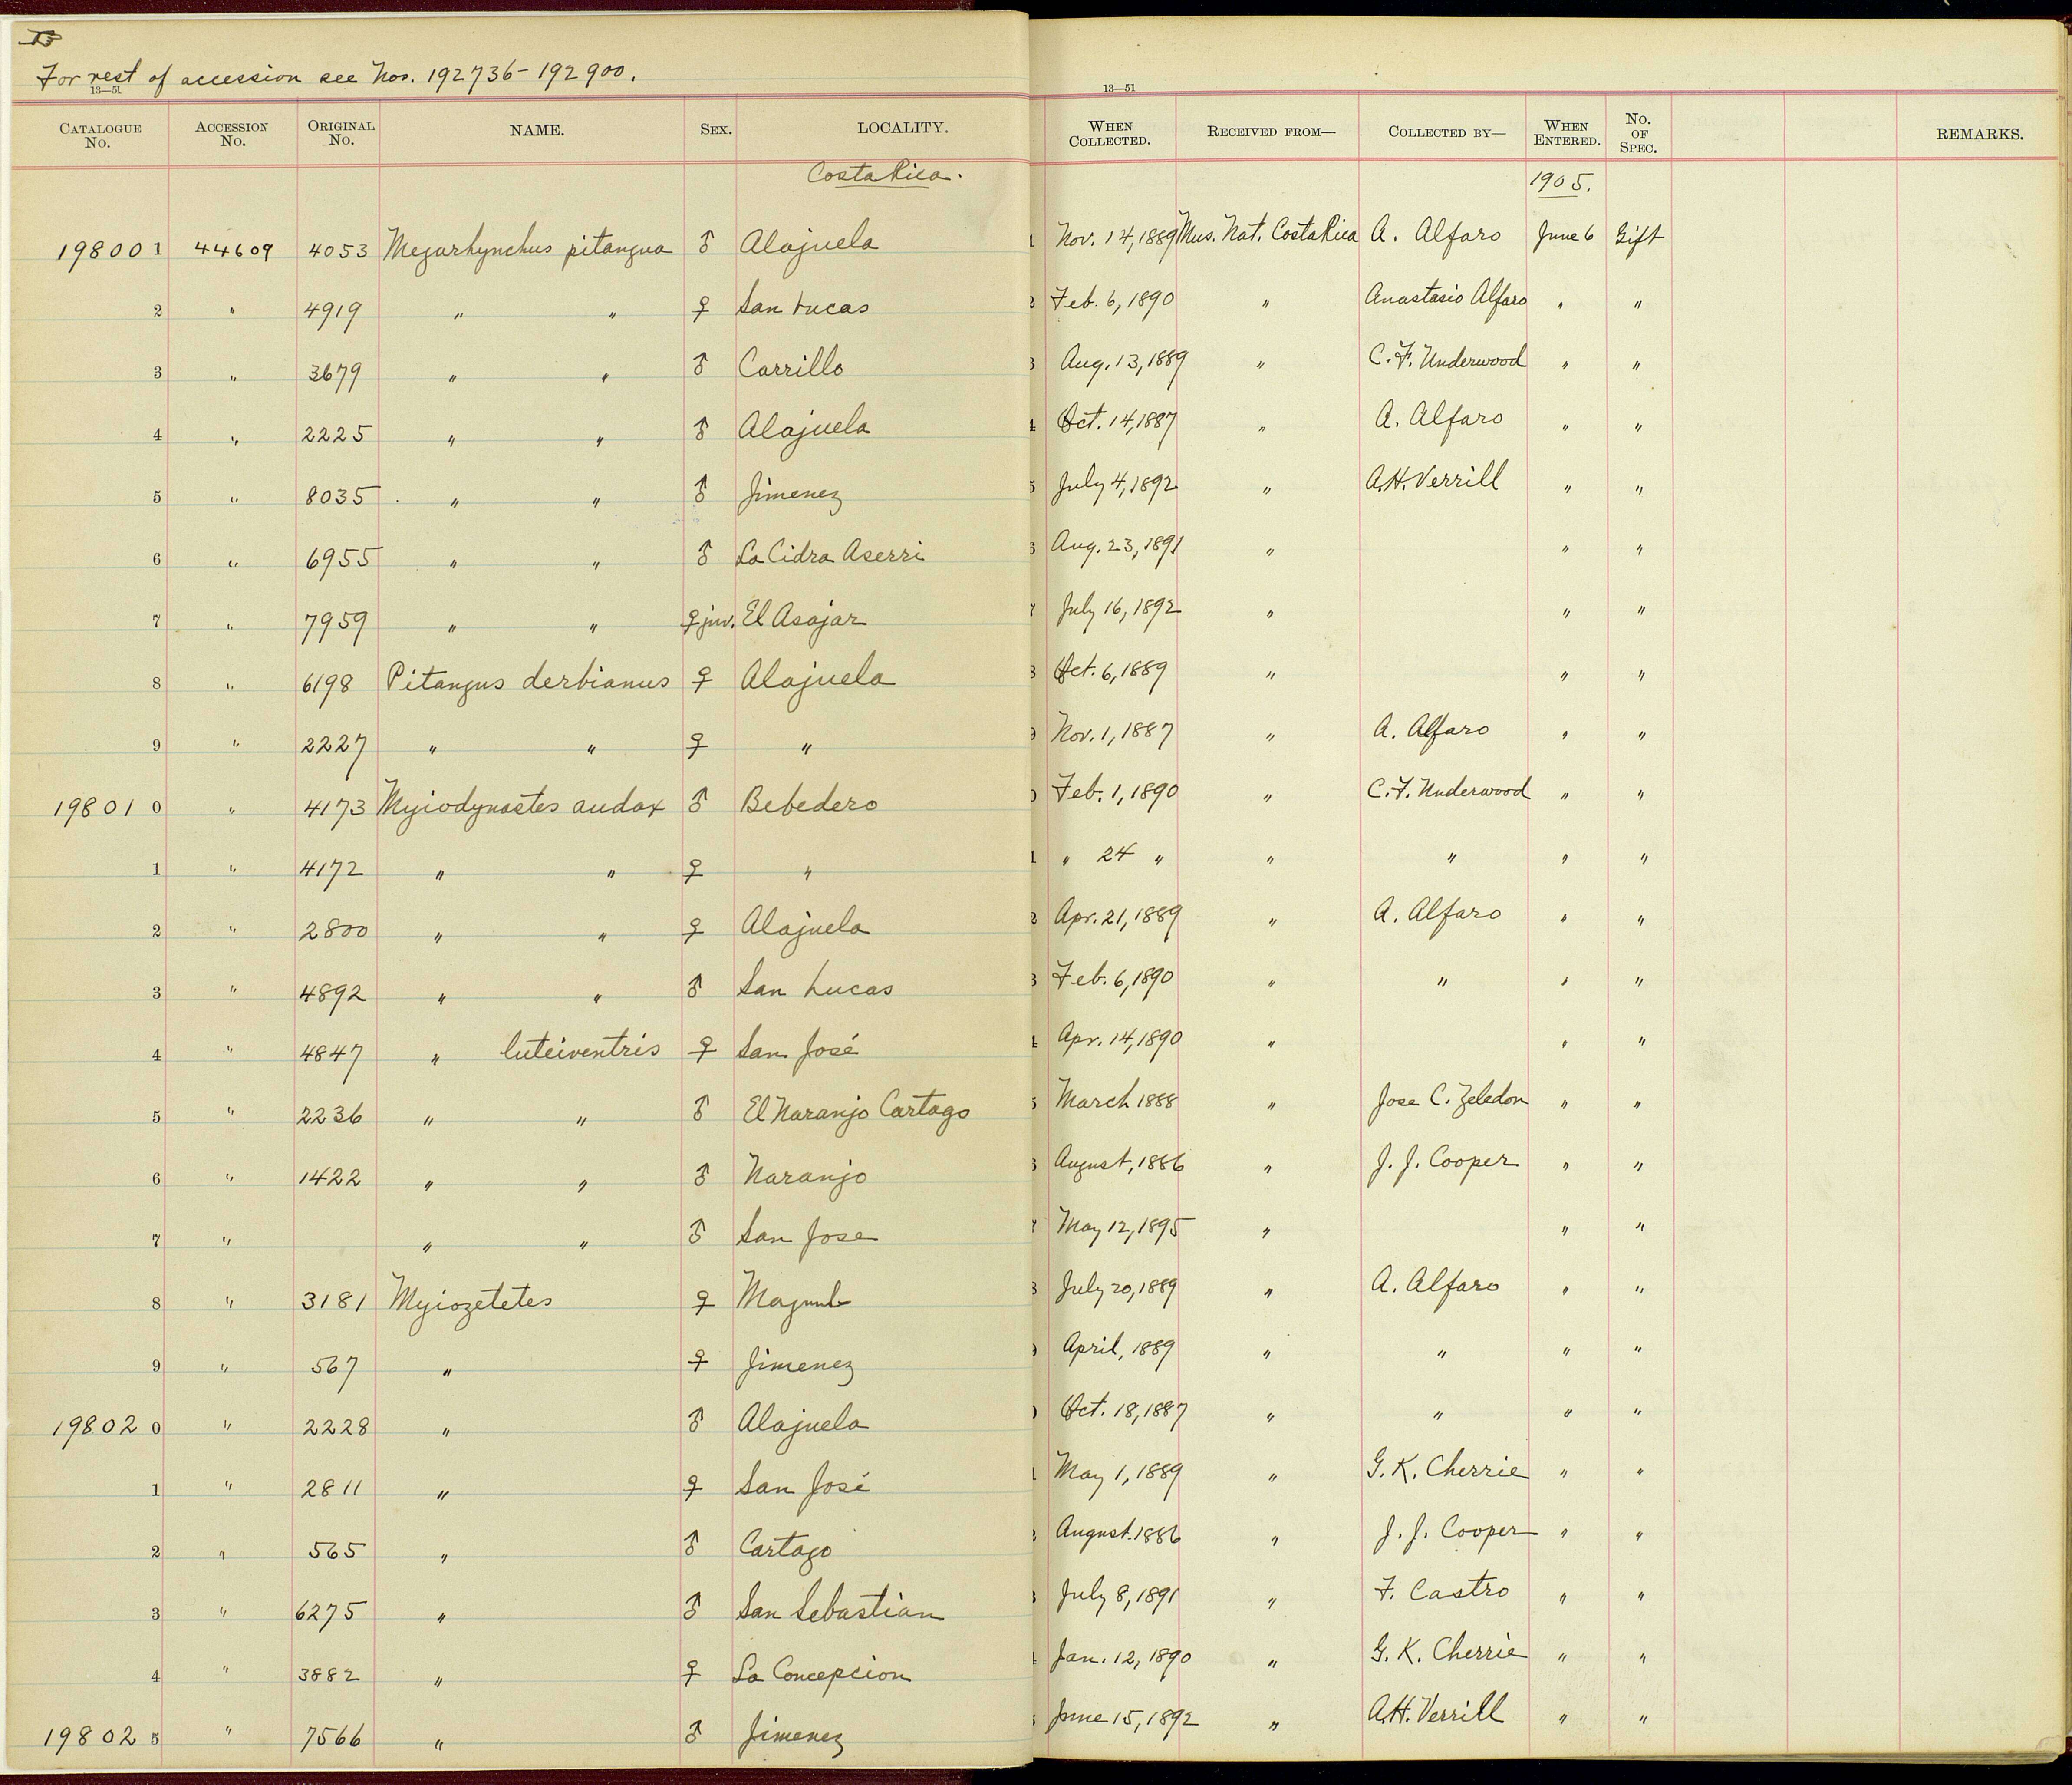 For rest of accession see Nos. 192736-192900.
13—51
13—51
CATALOGUE No. ACCESSION No. ORIGINAL No. NAME. SEX. LOCALITY. WHEN COLLECTED. RECEIVED FROM— COLLECTED BY— WHEN ENTERED. No. OF SPEC. REMARKS.
Costa Rica. 1905.
198001 44609 4053 Megarhynchus pitangua ♂ Alajuela 1 Nov. 14, 1889 Mus. Nat. Costa Rica A. Alfaro June 6 Gift
2 " 4919 " " ♀ San Lucas Feb. 6, 1890 " Anastasio Alfaro " "
3 " 3679 " " ♂ Carrillo Aug. 13, 1889 " C. F. Underwood " "
4 " 2225 " " ♂ Alajuela Oct. 14, 1887 " A. Alfaro " "
5 " 8035 " " ♂ Jimenez July 4, 1892 " A.H. Verrill " "
6 " 6955 " " ♂ La Cidra Aserri Aug. 23, 1891 " " "
7 " 7959 " " ♀ juv. El Asajar July 16, 1892 " " "
8 " 6198 Pitangus derbianus ♀ Alajuela Oct. 6, 1889 " " "
9 " 2227 " " ♀ " Nov. 1, 1887 " A. Alfaro " "
198010 " 4173 Myiodynastes audax ♂ Bebedero Feb. 1, 1890 " C. F. Underwood " "
1 " 4172 " " ♀ " " 24 " " " " "
2 " 2800 " " ♀ Alajuela Apr. 21, 1889 " A. Alfaro " "
3 " 4892 " " ♂ San Lucas Feb. 6, 1890 " " " "
4 " 4847 " luteiventris ♀ San José Apr. 14, 1890 " " "
5 " 2236 " " ♂ El Naranjo Cartago March 1888 " Jose C. Zeledon " "
6 " 1422 " " ♂ Naranjo August, 1886 " J. J. Cooper " "
7 " " " ♂ San Jose May 12, 1895 " " "
8 " 3181 Myiozetetes ♀ July 20, 1889 " A. Alfaro " "
9 " 567 " ♀ Jimenez April, 1889 " " " "
198020 " 2228 " ♂ Alajuela Oct. 18, 1887 " " " "
1 " 2811 " ♀ San José May 1, 1889 " G. K. Cherrie " "
2 " 565 " ♂ Cartago August. 1886 " J. J. Cooper " "
3 " 6275 " ♂ San Sebastian July 8, 1891 " F. Castro " "
4 " 3882 " ♀ La Concepcion Jan. 12, 1890 " G. K. Cherrie " "
198025 " 7566 " ♂ Jimenez June 15, 1892 " A.H. Verrill " "